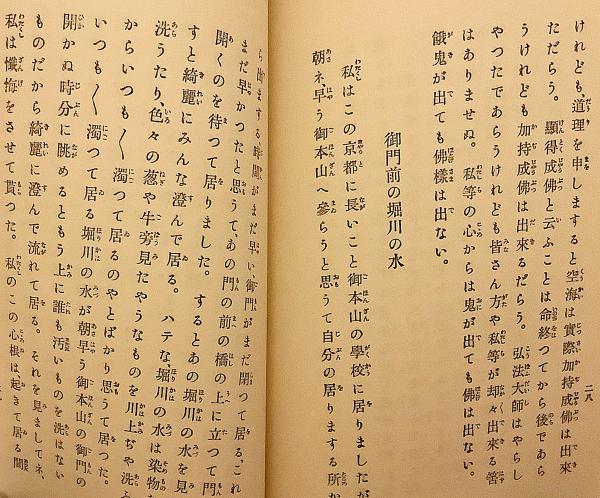 けれども、道理を申しますると空海は實際加持成佛は出來
ただらう。顯得成佛と云ふことは命終つてから後であら
うけれども加持成佛は出來るだらう。弘法大師はやらし
やつたであらうけれども皆さん方や私等が却々出來る筈
はありませぬ。私等の心からは鬼が出ても佛は出ない。
餓鬼が出ても佛樣は出ない。
御門前の堀川の水
私はこの京都に長いこと御本山の學校に居りましたが
朝ネ、早う御本山へ參らうと思うて自分の居りまする所か
二八
ら出まする時間がまだ早い、御門がまだ閉つて居る、これ
まだ早かつたと思うて、あの門の前の橋の上に立つて門
開くのを待つて居りました。するとあの堀川の水を見
すと綺麗にみんな澄んで居る。ハテな堀川の水は染物
洗うたり、色々の葱や牛旁見たやうなものを川上ぢや洗ふ
からいつも〱濁つて居るのやとばかり思うて居つた。
いつも〱濁つて居る堀川の水が朝早う御本山の御門の
開かぬ時分に眺めるともう上に誰も汚いものを洗はない
ものだから綺麗に澄んで流れて居る。それを見ましてネ、
私は懺悔をさせて貰つた。私のこの心根は、起きて居る間